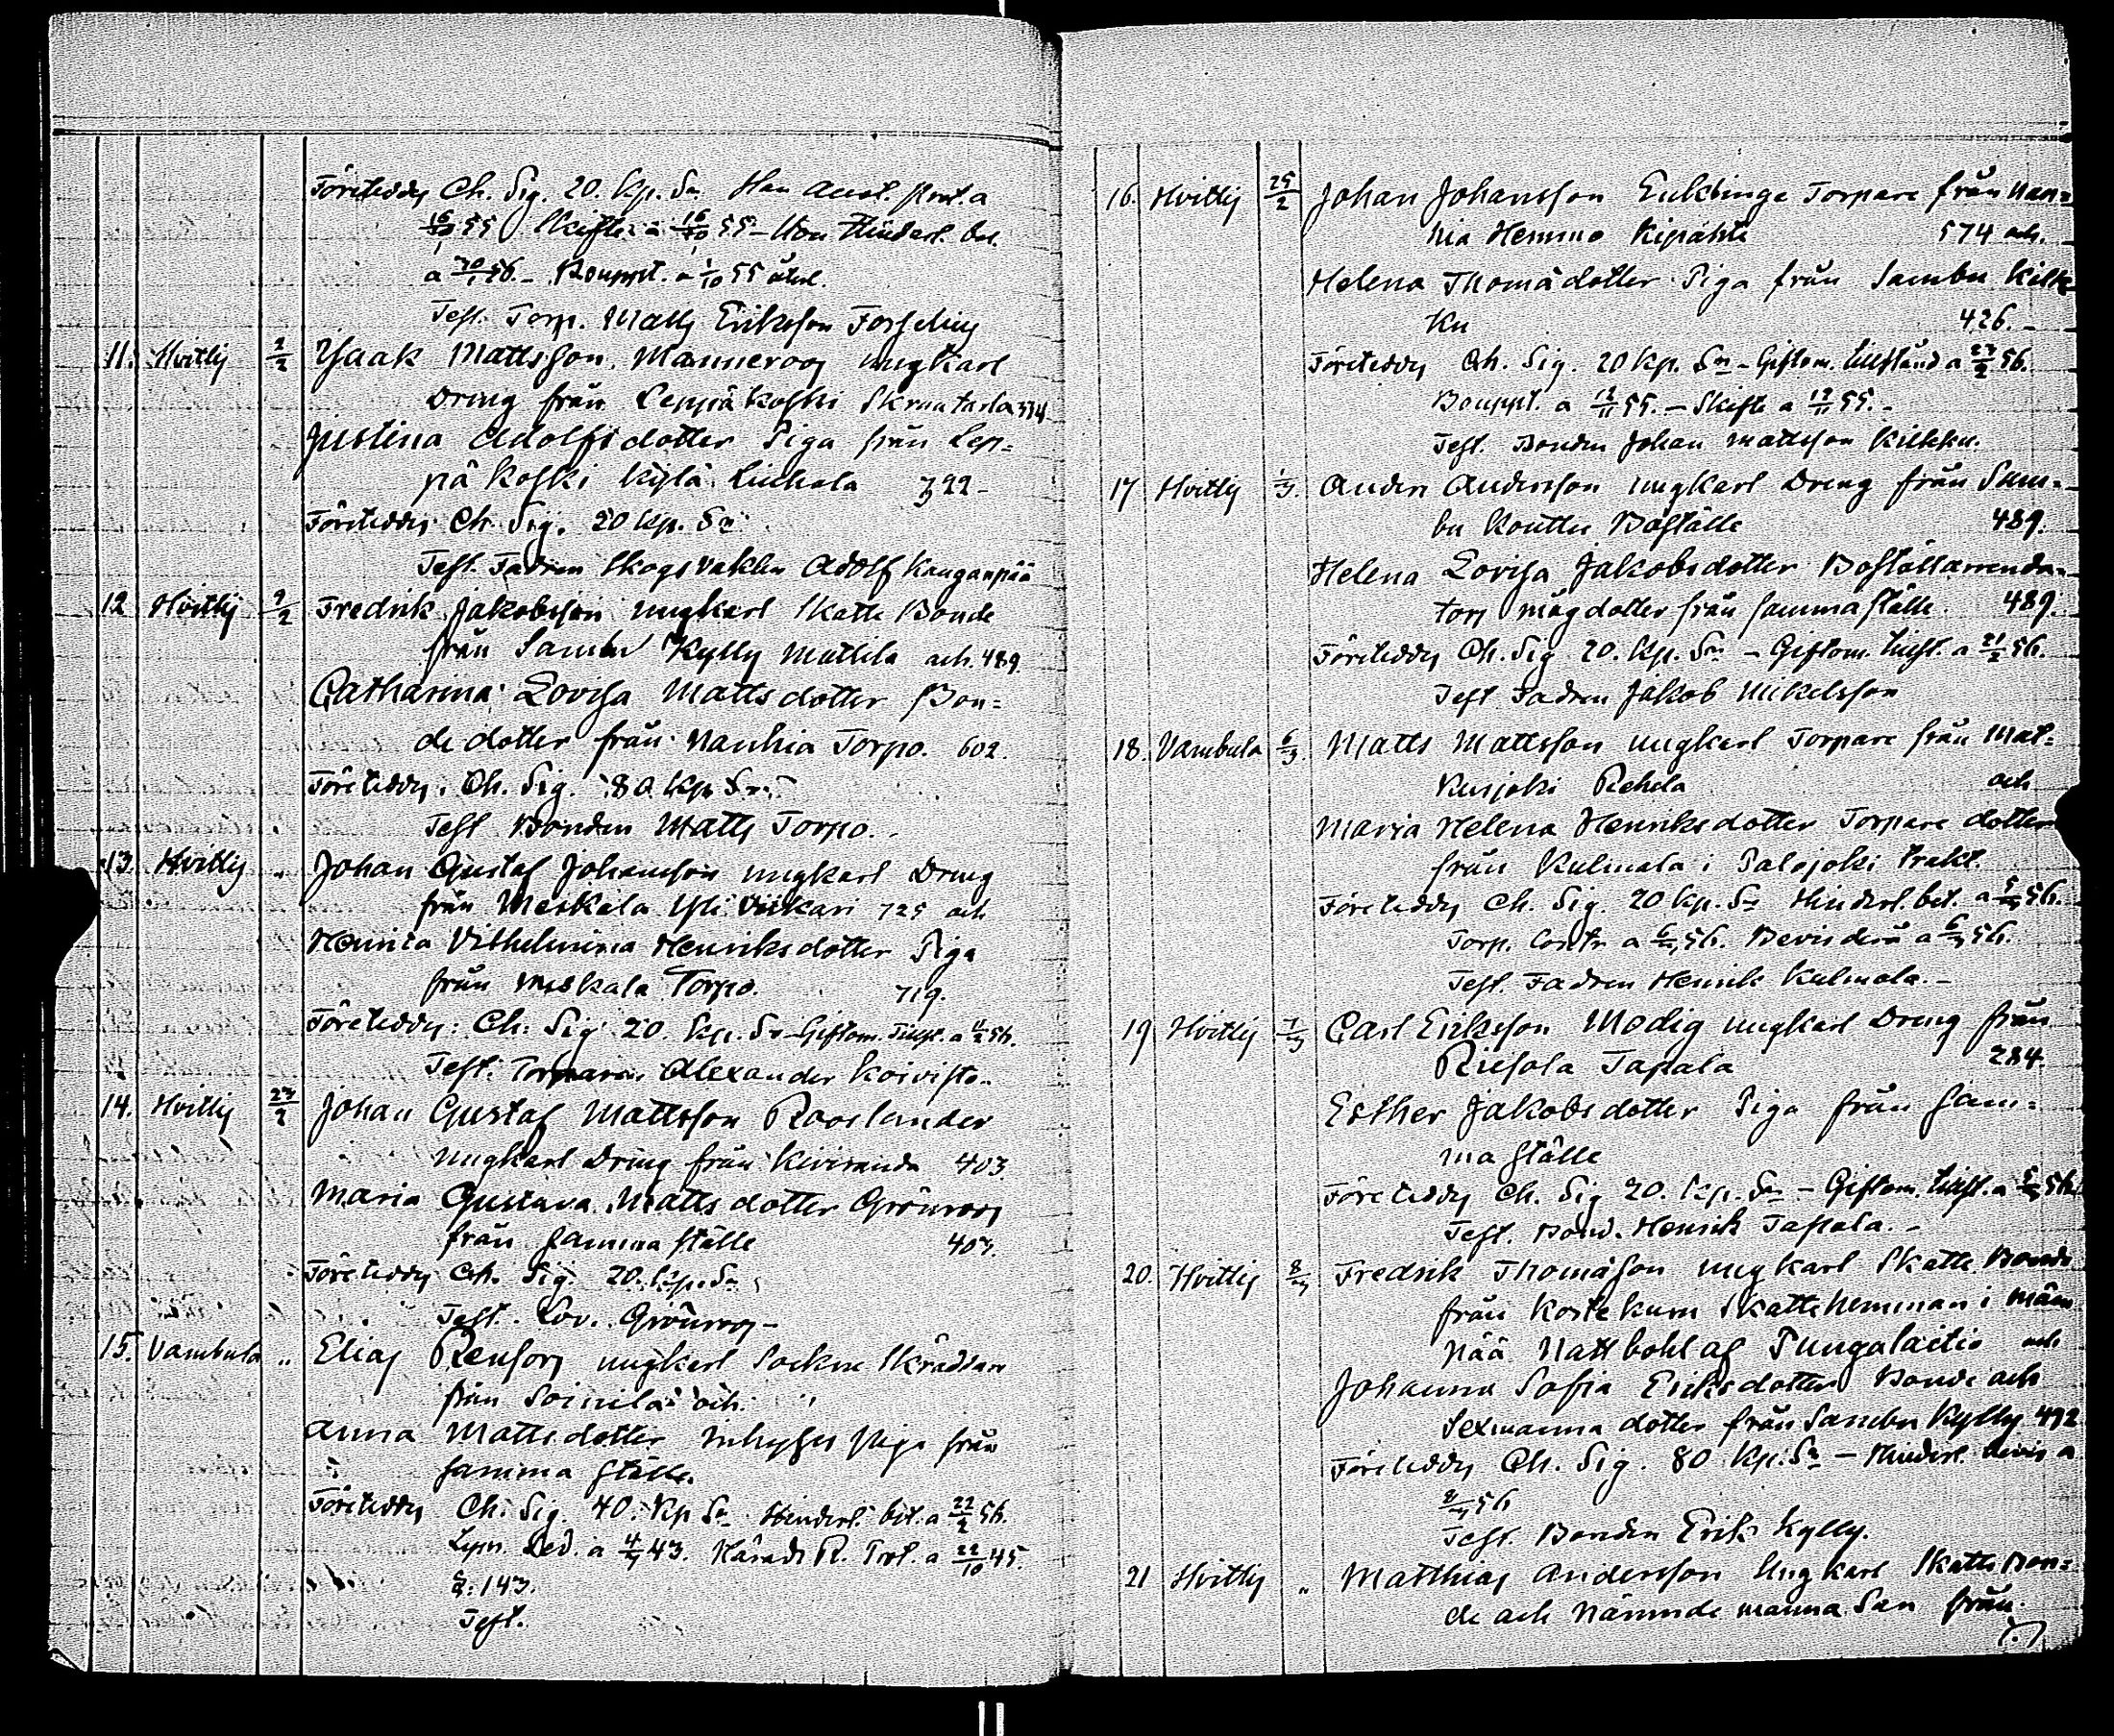 Företeddes Ch. Sig. 20. kp. Sr. Han
16/10 55 Skifte a 16/10 55 - Hon Hinderl. bet.
a 30/1 56. - Bouppt. a 1/10 55
Test. Torp. Matts Eriksson Forsseling
11. Hvittis 2/2 Isaak Mattsson Manneroos ungkarl
Dreng från Leppäkoski Skruutarla 334
Justina Adolfsdotter Piga från Lep=
päkoski Kylä Liuhala 322 -
Företeddes Ch. Sig. 20 kp. Sr
Test. Fadren Skogsvakten Adolf Kanganpää
12 Hvittis 9/2 Fredrik Jakobsson ungkarl Skatte Bonde
från Sambu Kylly Mattila och. 489
Catharina Lovisa Mattsdotter Bon=
de dotter från Nanhia Torpo. 602.
Företeddes. Ch. Sig. 80. kp. Sr.
Test Bonden Matts Torpo. -
13. Hvittis " Johan Gustaf Johansson ungkarl Dreng
från Meskala Yli Viikari 725 och
Henrica Vilhelmina Henriksdotter Piga
från Meskala Torpo. 719.
Företeddes: Ch: Sig 20 kp. Sr - Giftom. Tillst. a 11/2 56.
Test: Torparen Alexander Koivisto..
14. Hvittis 23/2 Johan Gustaf Mattsson Rooslander
ungkarl Dreng från Kiviranda 403.
Maria Gustava Mattsdotter Grönroos
från samma ställe 403.
Företeddes Ch. Sig. 20. kp. Sr
Test. Lov. Grönroos -
15. Vambula " Elias Renfors ungkarl Sockne Skräddare
från Soinila och
Anna Mattsdotter Inhyses piga från
samma ställe.
Företeddes Ch: Sig. 40. kp Sr Hinderl. bet. a 22/2 56.
Led. a 4/3 43. Härads R. Prot. a 22/10 45.
§: 143.
Test.
16. Hvittis 25/2 Johan Johansson Torpare från Nan=
hia Hemmo Kipahte 574 och. -
Helena Thomadotter Piga från Sambu Kilk=
ku 426. -
Företeddes Ch. Sig. 20 kp. Sr - Giftom. tillstånd a 23/2 56.
Bouppt. a 12/11 55. - Skifte a 12/11 55. -
Test. Bonden Johan Mattsson Kilkku.
17 Hvittis 1/3. Anders Andersson ungkarl Dreng från Sam=
bu Kouttu Boställe 489.
Helena Lovisa Jakobsdotter Boställsarrenda=
tors mågdotter från samma ställe. 489.
Företeddes Ch. Sig 20. kp. Sr - Giftom. tillst. a 21/2 56.
Test Fadren Jakob Mikelsson
18. Vambula 6/3. Matts Mattsson ungkarl Torpare från Mat=
kusjoki Rehela och
Maria Helena Henriksdotter Torpare dotter
från Kulmala i Palojoki trakt.
Företeddes Ch. Sig. 20 kp. Sr Hinderl. bet. a 5/3 56.
Torp. Contr a 6/3 56. Bevis derå a 6/3 56.
Test. Fadren Henrik Kulmala. -
19 Hvittis 7/3 Carl Eriksson Modig ungkarl Dreng från
Riesola Tapala 284.
Esther Jakobsdotter Piga från sam=
ma ställe
Företeddes Ch. Sig 20. kp. Sr - Giftom. tillst. a 5/3 56.
Test. Bond. Henrik Tapala. -
20. Hvittis 8/3 Fredrik Thomasson ungkarl Skatte Bonde
från Kortekum Skattehemman i
Nattbohl af Pungalaitio och
Johanna Sofia Eriksdotter Bonde och
Sexmanna dotter från Sambu Kylly 492
Företeddes Ch. Sig. 80 kp. Sr - Hinderl. bevis a
8/3 56
Test. Bonden Erik Kylly.
21 Hvittis " Matthias Andersson Ungkarl Skatte Bon=
de och Nämnde manna Son från